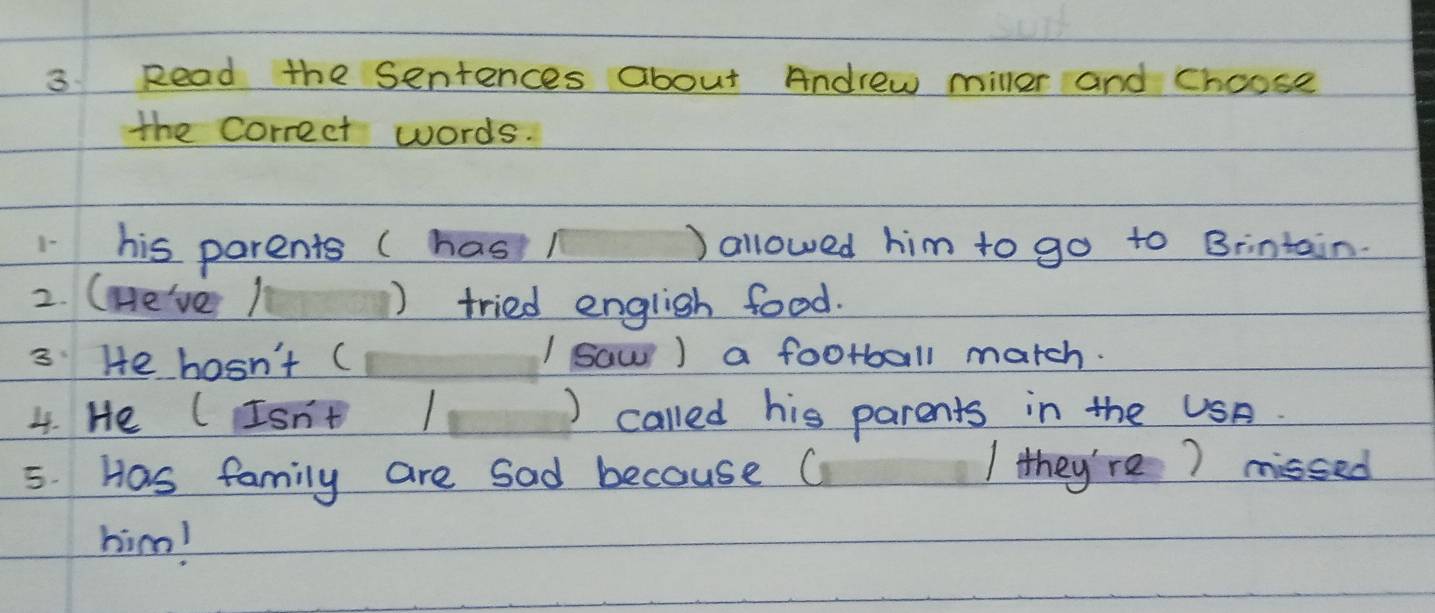 3. Read the sentences about Andrew miller and choose
the correct words.
1- his parents ( has / ) allowed him to go to Brintain.
2. (He've / ) tried english food.
3. He hasn't ( / saw ) a football match.
4. He ( Isn't / ) called his parents in the USA.
5. Has family are sad because ( / they're ) missed
him!